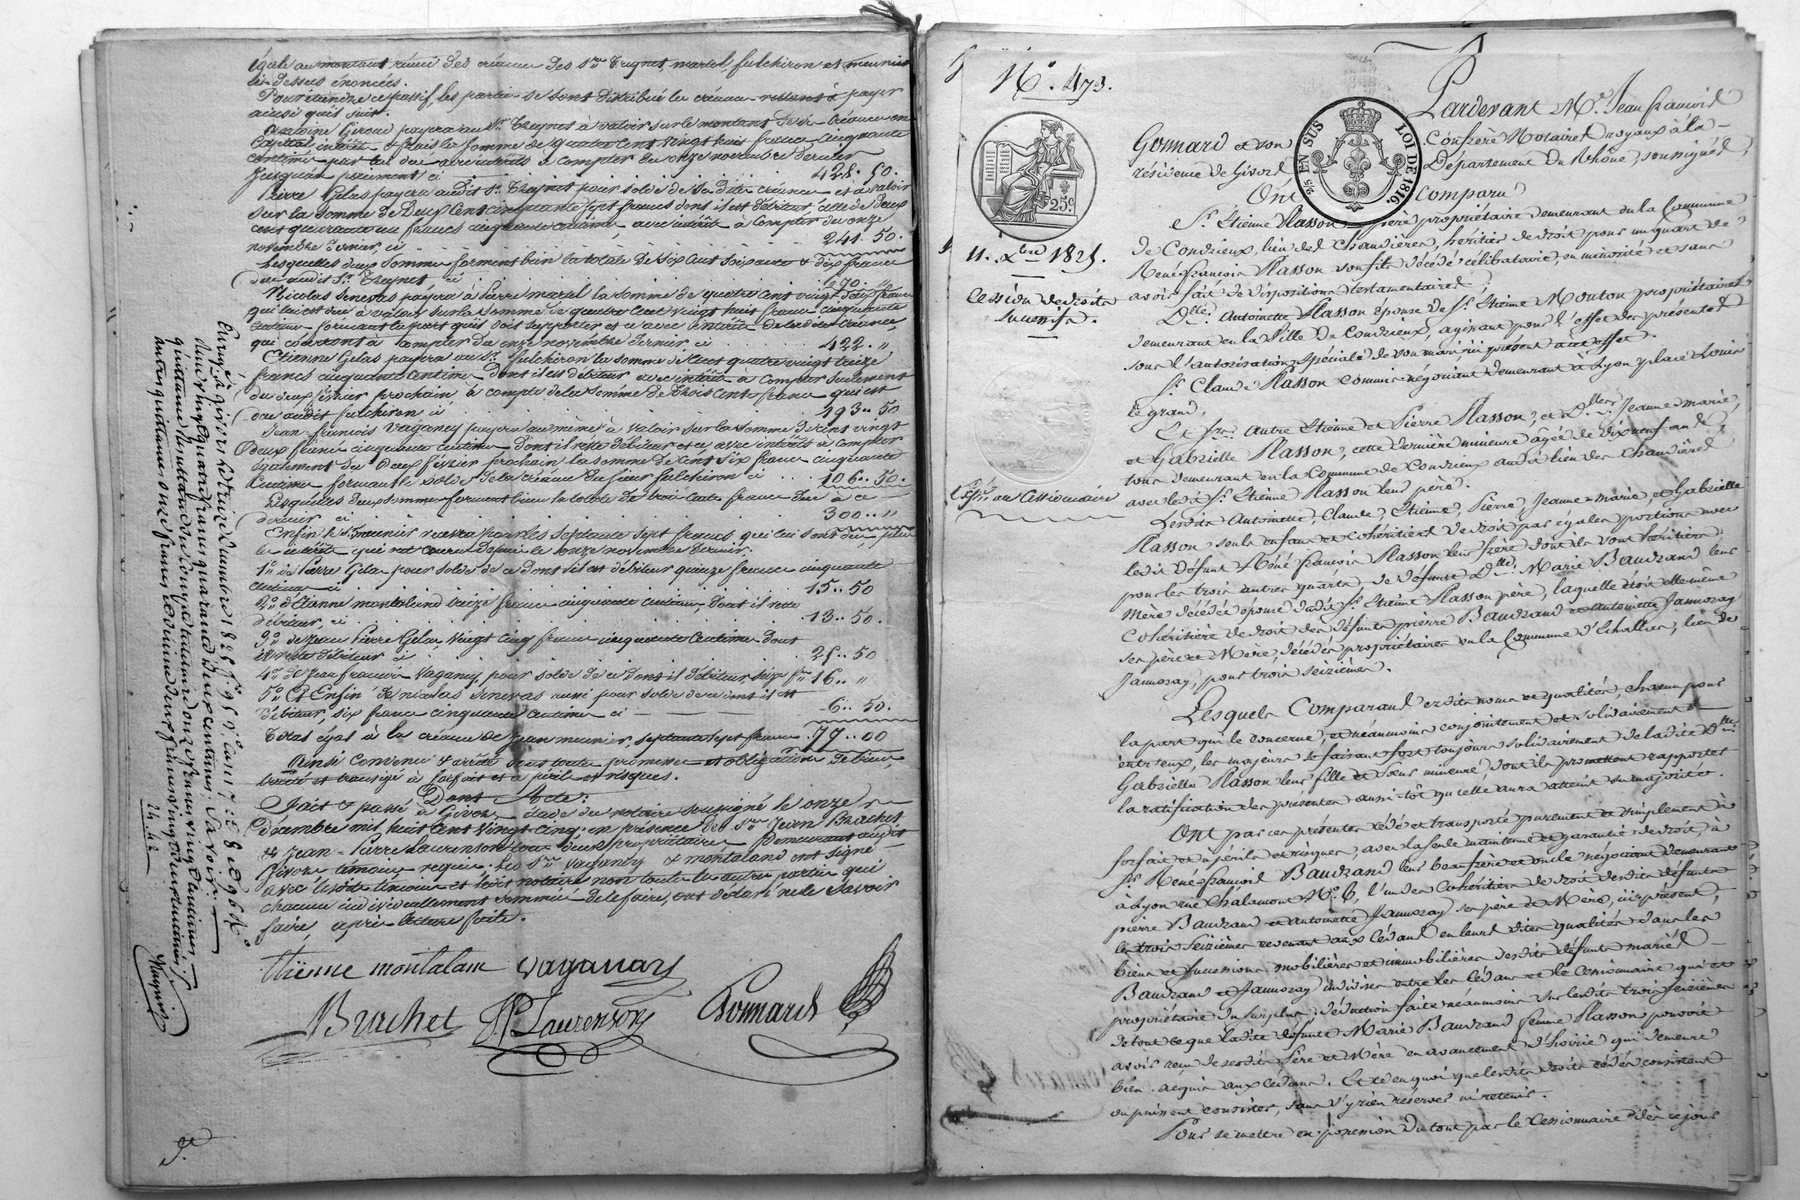 égale au montant réuni des créances des Srs Treynet, marel, fulchiron et meunier
ci-dessus énoncées.
Pour éteindre ce passif, les parties se sont distribué les créances restant à payer
ainsi qu'il suit.
Antoine Giroud payera au Sr. Treynet à valoir sur le montant de sa créance en
Capital intérêts & frais la somme de quatre cent vingt huit francs cinquante
centimes par lui due avec intérêts à compter du onze novembre dernier
jusqu'au paiement, ci 428.. 50.
Pierre Gelas payera audit Sr. Treynet pour solde de sa dite créance et à valoir
sur la somme de Deux cent cinquante sept francs dont il est débiteur celle de deux
cent quarante un francs cinquante centimes avec intérêts à compter du onze
novembre dernier, ci 241. 50.
Lesquelles deux sommes forment bien la totale de six cent soixante & dix francs
due audit Sr. Treynet ci 670. "
Nicolas Seneras payera à Pierre marel la somme de quatre cent vingt deux francs
qui lui est due à valoir sur la somme de quatre cent vingt huit francs cinquante
centimes formant la part qu'il doit supporter et ce avec intérêts de la dite créance,
qui courront à compter du onze novembre dernier ci 422. "
Etienne Gelas payera au Sr. fulchiron la somme de cent quatre vingt treize
francs cinquante centimes dont il est débiteur avec intérêts à compter seulement
du deux février prochain à compte de la somme de trois cents francs qui est
due audit fulchiron ci 193.. 50
Jean-françois Vaganay payera au même à valoir sur la somme de cent vingt
Deux francs cinquante centimes dont il reste débiteur et ce avec intérêts à compter
également du Deux février prochain la somme de cent six francs cinquante
centimes formant le solde de la créance du sieur fulchiron ci 106.. 50.
Lesquelles deux sommes forment bien la totale de trois cents francs due à ce
dernier, ci 300.. "
Enfin le Sr. meunier recevra pour les septante sept francs qui lui sont dus plus
les intérêts qui ont couru depuis le onze novembre dernier.
1o. de Pierre Gelas pour solde de ce dont il est débiteur quinze francs cinquante
centimes ci 15.. 50
2o. d'Etienne montaland treize francs cinquante centimes dont il reste
débiteur, ci 13.. 50.
3o. de Jean Pierre Gelas, vingt cinq francs cinquante centimes dont
il reste débiteur ci 25.. 50
4o. de Jean francois Vaganay, pour solde de ce dont il débiteur, seize frs 16.. "
5o. Et Enfin de nicolas Seneras aussi pour solde de ce dont il est
débiteur, six francs cinquante centimes ci 6.. 50.
Total égal à la créance de jean meunier, septante sept francs 77.. 00
Ainsi convenu & arrêté sous toutes promesses et obligations de biens,
traité et transigé à forfait et à péril et risques.
Dont Acte:
Fait & passé à Givors, étude du notaire soussigné le onze
décembre mil huit cent vingt cinq, en présence des Srs Jean Bruchet
& Jean-Pierre Laurenson tous deux propriétaires demeurant audit
Givors témoins requis. Les Srs Vaganay & montaland ont signé
avec lesdits témoins et ledit notaire non toutes les autres parties qui
chacune individuellement sommées de le faire, ont déclaré ne le savoir
faire après lecture faite.
Etiënne montalam vaganay
Burchet JP Laurenson Gonnard
Enregistré à givors le treize décembre 1825 fo. 95 vo. cases 1 7 & 8 et 96 Ro.
24.. 42
No. 473.
25c.
2/5 EN SUS LOI DE 1816.
11. Xbre 1825.
Cession de droits
successifs.
Expn. au Cessionnaire
Pardevant Me. Jean françois
Gonnard et son Confrère Notaires royaux à la
résidence de Givors Département du Rhône, soussignés,
Ont comparu
Sr. Etienne Plasson père, propriétaire demeurant en la Commune
de Condrieux, lieu des Chaudières, héritier de droit pour un quart de
René-françois Plasson son fils décédé célibataire, en minorité et sans
avoir fait de dispositions testamentaires;
Dlle. Antoinette Plasson épouse de Sr. Etienne Mouton propriétaires
demeurant en la Ville de Condrieux, agissant pour l'effet des présentes
sous l'autorisation spéciale de son mari ici présent à cet effet.
Sr. Claude Plasson commis-négociant demeurant à Lyon place Louis
le grand,
Et Srs. Autre Etienne et Pierre Plasson, et Dlles Jeanne-Marie,
et Gabrielle Plasson, cette dernière mineure âgée de dix neuf ans,
tous demeurant en la Commune de Condrieux audit lieu des Chaudières
avec ledit Sr. Etienne Plasson leur père.
Lesdits Antoinette, Claude, Etienne, Pierre, Jeanne-Marie et Gabrielle
Plasson seuls enfans et cohéritiers de droit par égales portions avec
ledit défunt Réné françois Plasson leur frère dont ils sont héritiers
pour les trois autres quarts, de défunte Dlle. Marie Baudrand leur
Mère décédée épouse dudit Sr. Etienne Plasson père, laquelle étoit elle-même
Cohéritière de droit des défunts pierre Baudrand et antoinette Jamozay
ses père et Mère, décédés propriétaires en la Commune d'Echallier, lieu de
Jamozay, pour trois seizièmes.
Lesquels Comparans esdits noms et qualités, chacun pour
la part qui le concerne, et néanmoins conjointement et solidairement
entr'eux, les majeurs se faisant fort toujours solidairement de ladite Dlle.
Gabrielle Plasson leur fille et sœur mineure, dont ils promettent rapporter
la ratification des présentes aussi-tôt qu'elle aura atteint sa majorité.
Ont par ces présentes cédé et transporté purement et simplement à
forfait et à périls et risques, avec la seule maintenue et garantie de droit, à
Sr. René-françois Baudrand leur beaufrère et oncle négociant demeurant
à Lyon rue Chalamont No. 6, l'un des Cohéritiers de droit desdits défunts
pierre Baudrand et antoinette Jamozay ses père et Mère, ici présent,
les trois seizièmes revenant aux Cédans en leurs dites qualités dans les
biens et successions mobilières et immobilières desdits défunts mariés
Baudrand et Jamozay indivises entre les Cédans et le Cessionnaire qui est
propriétaire du surplus, déduction faite néanmoins sur lesdits trois seizièmes
de tout ce que ladite défunte Marie Baudrand femme Plasson pouvoit
avoir reçu de sesdits Père et Mère en avancement d'hoirie qui demeure
bien acquis aux Cédans. Et en quoi que lesdits droits cédés consistent
ou puissent consister, sans s'y rien réserver ni retenir.
Pour se mettre en possession du tout par le Cessionnaire dès ce jour